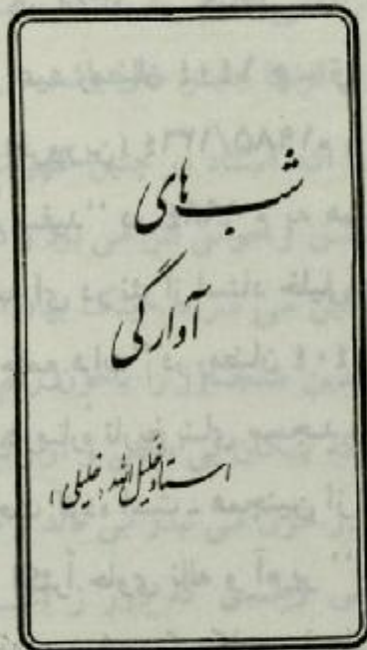 شب‌های
آوارگی
استاد خلیل الله «خلیلی»